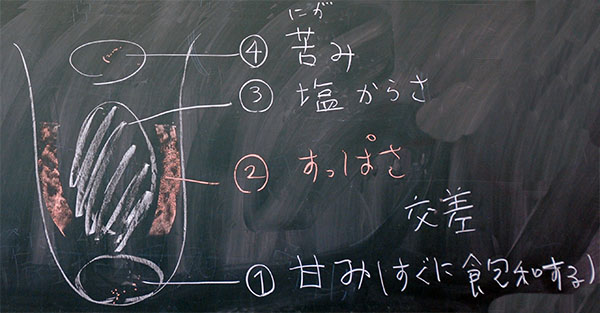 にが
④ 苦み
③ 塩からさ
② すっぱさ
交差
① 甘み(すぐに飽和する)